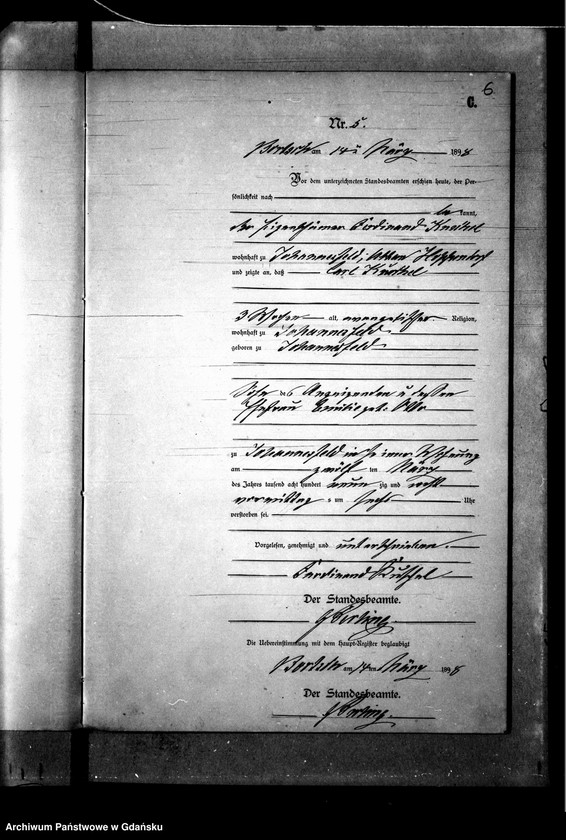 6
C.
Nr. 5.
am 14ten März 1898
Vor dem unterzeichneten Standesbeamten erschien heute, der Per-
sönlichkeit nach
bekannt,
der Eigenthümer Ferdinand
wohnhaft zu Johannesfeld,
und zeigte an, daß Carl
3 Wochen alt, evangelischer Religion,
wohnhaft zu Johannesfeld
geboren zu Johannesfeld
Sohn des Anzeigenden u dessen
Ehefrau Emilie geb. Otto
zu Johannesfeld in seiner Wohnung
am zwölften März
des Jahres tausend acht hundert neunzig und acht
vormittags um sechs Uhr
verstorben sei.
Vorgelesen, genehmigt und unterschrieben.
Ferdinand
Der Standesbeamte.
Die Uebereinstimmung mit dem Haupt-Register beglaubigt
am 14ten März 1898
Der Standesbeamte.
Archiwum Państwowe w Gdańsku